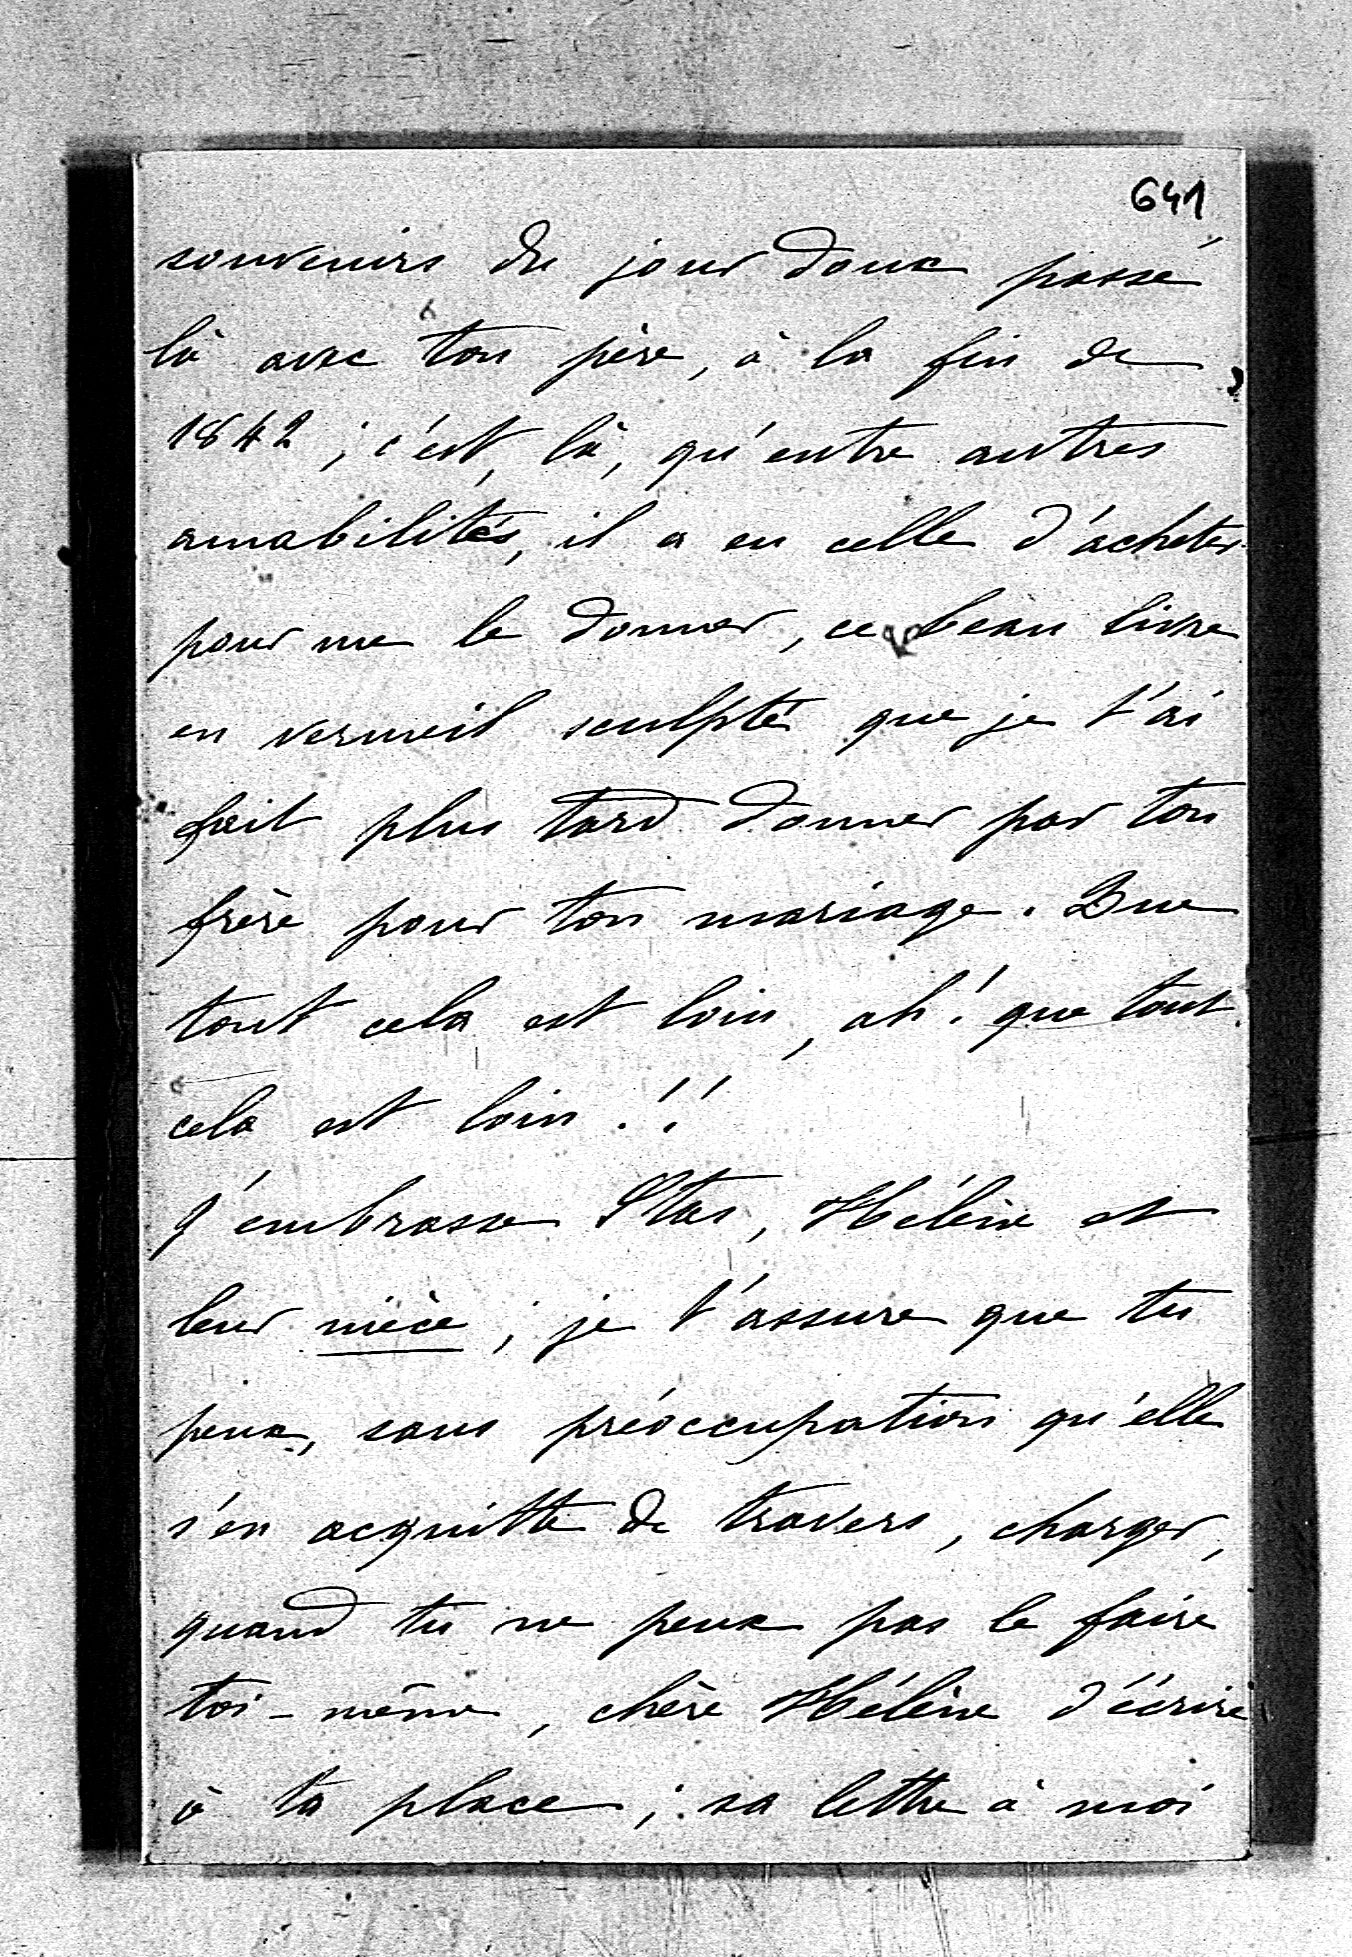 641
souvenirs du jour doux passé
là avec ton père, à la fin de
1842 ; c'est, là, qu'entre autres
amabilités, il a eu celle d'acheter
pour me le donner, ce beau livre
en vermeil sculpté que je t'ai
fait plus tard donner par ton
frère pour ton mariage. Que
tout cela est loin, ah! que tout
cela est loin !!
J'embrasse Stas, Hélène et
leur nièce ; je t'assure que tu
peux, sans préoccupation qu'elle
s'en acquitte de travers, charger,
quand tu ne peux pas le faire
toi-même, chère Hélène d'écrire
à ta place ; sa lettre à moi